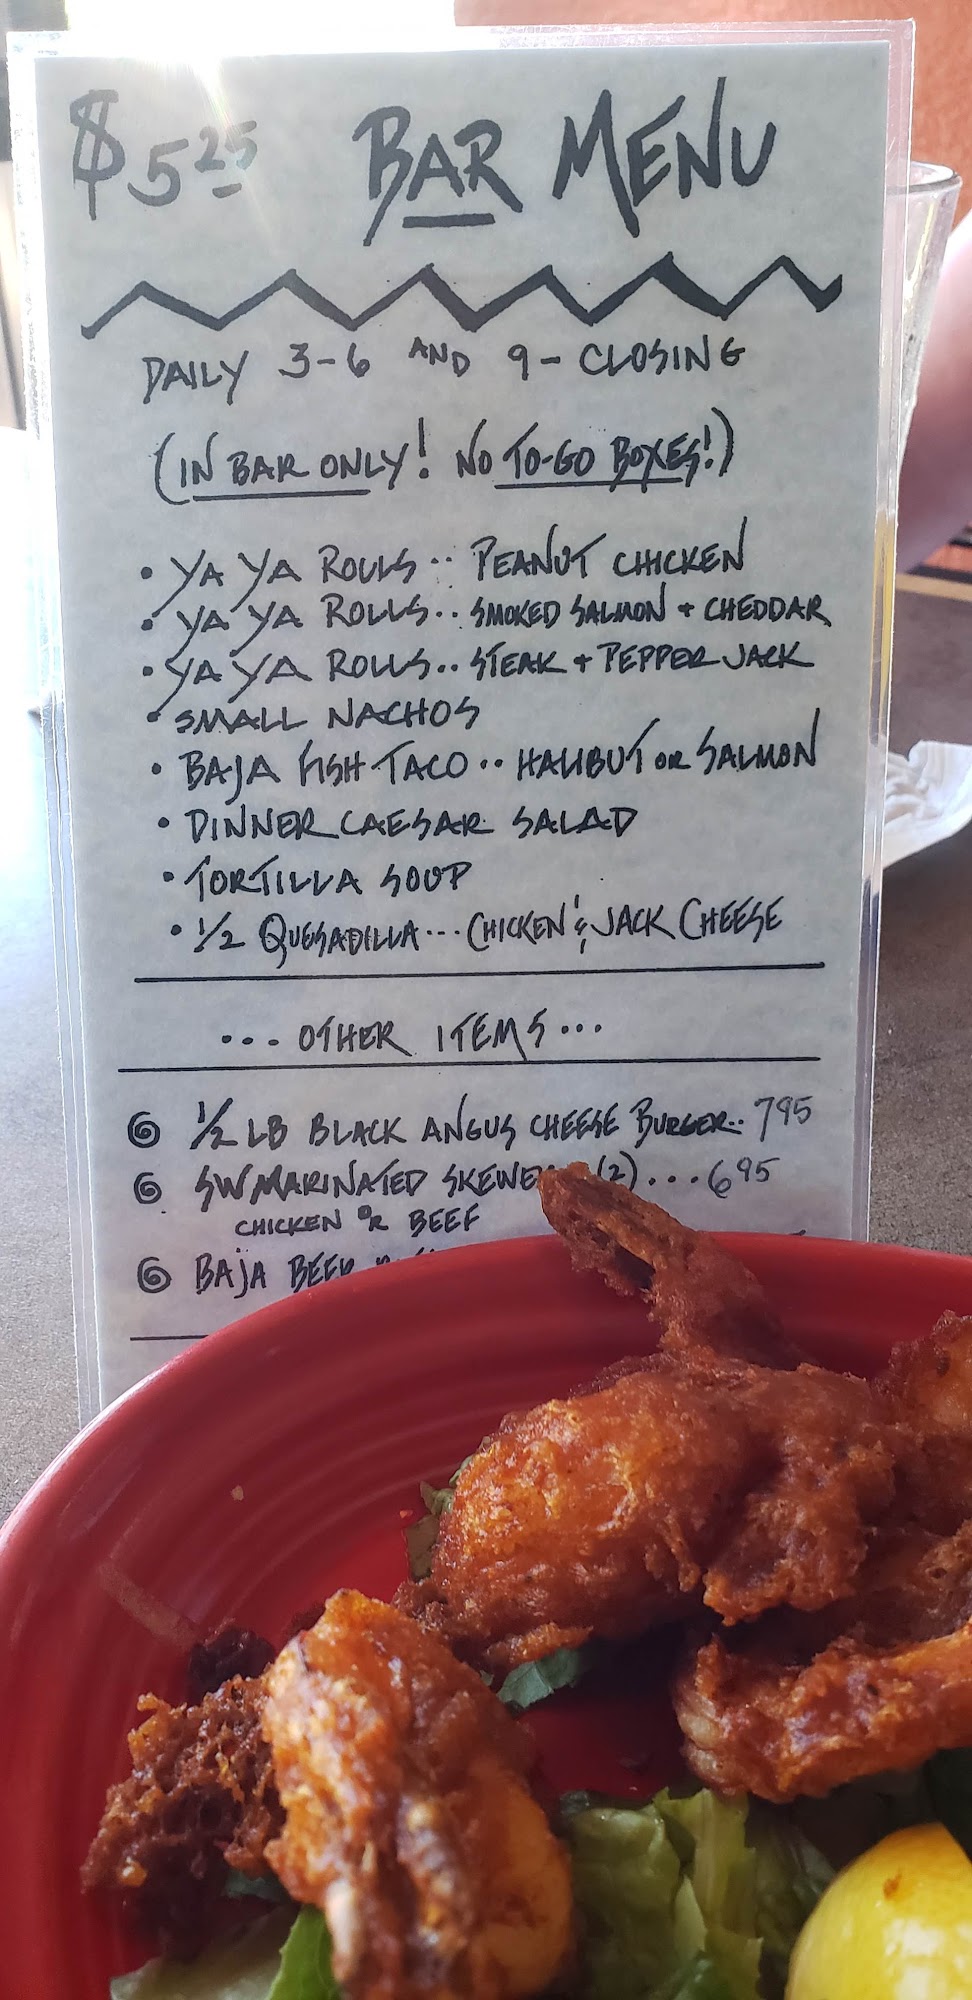 $5.25 BAR MENU
DAILY 3-6 AND 9-CLOSING
(IN BAR ONLY! NO TO-GO BOXES!)
• YA YA ROLLS.. PEANUT CHICKEN
• YA YA ROLLS.. SMOKED SALMON + CHEDDAR
• YA YA ROLLS.. STEAK + PEPPER JACK
• SMALL NACHOS
• BAJA FISH TACO.. HALIBUT OR SALMON
• DINNER CAESAR SALAD
• TORTILLA SOUP
• 1/2 QUESADILLA... CHICKEN & JACK CHEESE
... OTHER ITEMS ...
1/2 LB BLACK ANGUS CHEESE BURGER.. 795
SW MARINATED (2)... 695
CHICKEN OR BEEF
BAJA BEER